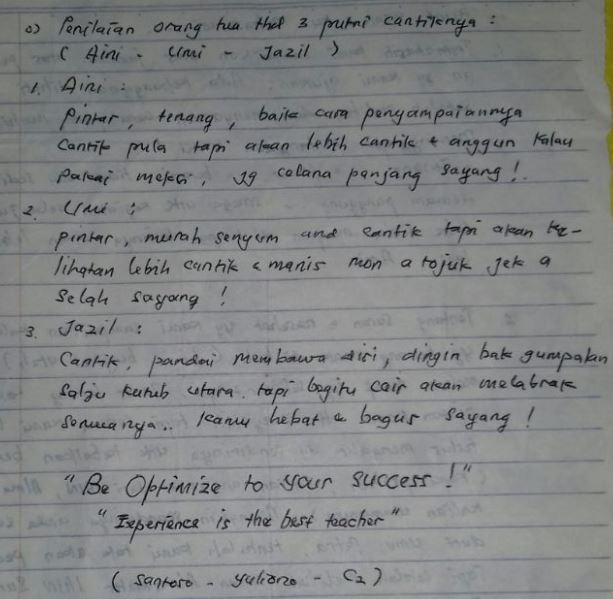 o) Penilaian orang tua thd 3 putri cantiknya :
( Aini - Umi - Jazil )
1. Aini :
Pintar, tenang, baik cara penyampaiannya
Cantik pula tapi akan lebih cantik & anggun kalau
pakai meksi, jg celana panjang sayang !.
2. Umi :
pintar, murah senyum and cantik tapi akan ke-
lihatan lebih cantik & manis mon a tojuk jek a
selah sayang !
3. Jazil :
Cantik, pandai membawa diri, dingin bak gumpalan
salju kutub utara. tapi begitu cair akan melabrak
semuanya.. kamu hebat & bagus sayang !
"Be Optimize to your success !"
"Experience is the best teacher"
( Santoso - Yuliono - C2 )